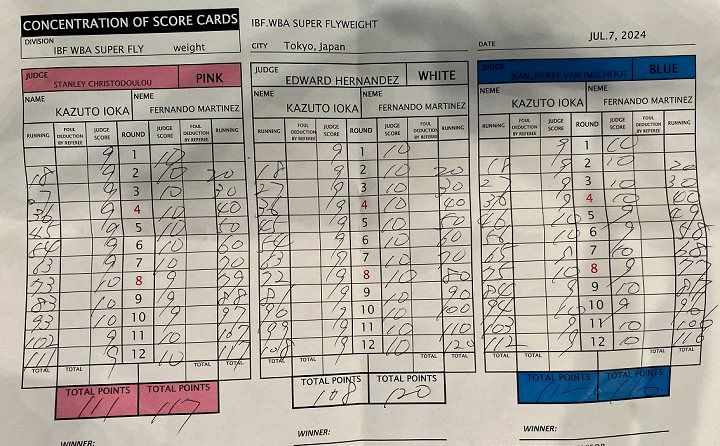 CONCENTRATION OF SCORE CARDS
IBF.WBA SUPER FLYWEIGHT
DIVISION IBF.WBA SUPER FLY weight
CITY Tokyo, Japan
DATE JUL.7, 2024
JUDGE STANLEY CHRISTODOULOU PINK
NAME KAZUTO IOKA NEME FERNANDO MARTINEZ
RUNNING FOUL DEDUCTION BY REFEREE JUDGE SCORE ROUND JUDGE SCORE FOUL DEDUCTION BY REFEREE RUNNING
9 1 10
18 9 2 10 20
27 9 3 10 30
36 9 4 10 40
45 9 5 10 50
54 9 6 10 60
63 9 7 10 70
73 10 8 9 79
83 10 9 9 88
93 10 10 9 97
102 9 11 10 107
111 9 12 10 117
TOTAL TOTAL
TOTAL POINTS TOTAL POINTS
111 117
WINNER:
JUDGE EDWARD HERNANDEZ WHITE
NAME KAZUTO IOKA NEME FERNANDO MARTINEZ
RUNNING FOUL DEDUCTION BY REFEREE JUDGE SCORE ROUND JUDGE SCORE FOUL DEDUCTION BY REFEREE RUNNING
9 1 10
18 9 2 10 20
27 9 3 10 30
36 9 4 10 40
45 9 5 10 50
54 9 6 10 60
63 9 7 10 70
72 9 8 10 80
9 9 10 90
9 10 10 100
99 9 11 10 110
108 9 12 10 120
TOTAL TOTAL
TOTAL POINTS TOTAL POINTS
108 120
WINNER:
JUDGE JEAN-PIERRE VAN IMSCHOOT BLUE
NAME KAZUTO IOKA NEME FERNANDO MARTINEZ
RUNNING FOUL DEDUCTION BY REFEREE JUDGE SCORE ROUND JUDGE SCORE FOUL DEDUCTION BY REFEREE RUNNING
9 1 10
18 9 2 10 20
27 9 3 10 30
36 9 4 10 40
46 10 5 9 49
56 10 6 9 58
65 9 7 10 68
75 10 8 9 77
84 9 9 10 87
94 10 10 9 96
103 9 11 10 106
112 9 12 10 116
TOTAL TOTAL
TOTAL POINTS TOTAL POINTS
112 116
WINNER: